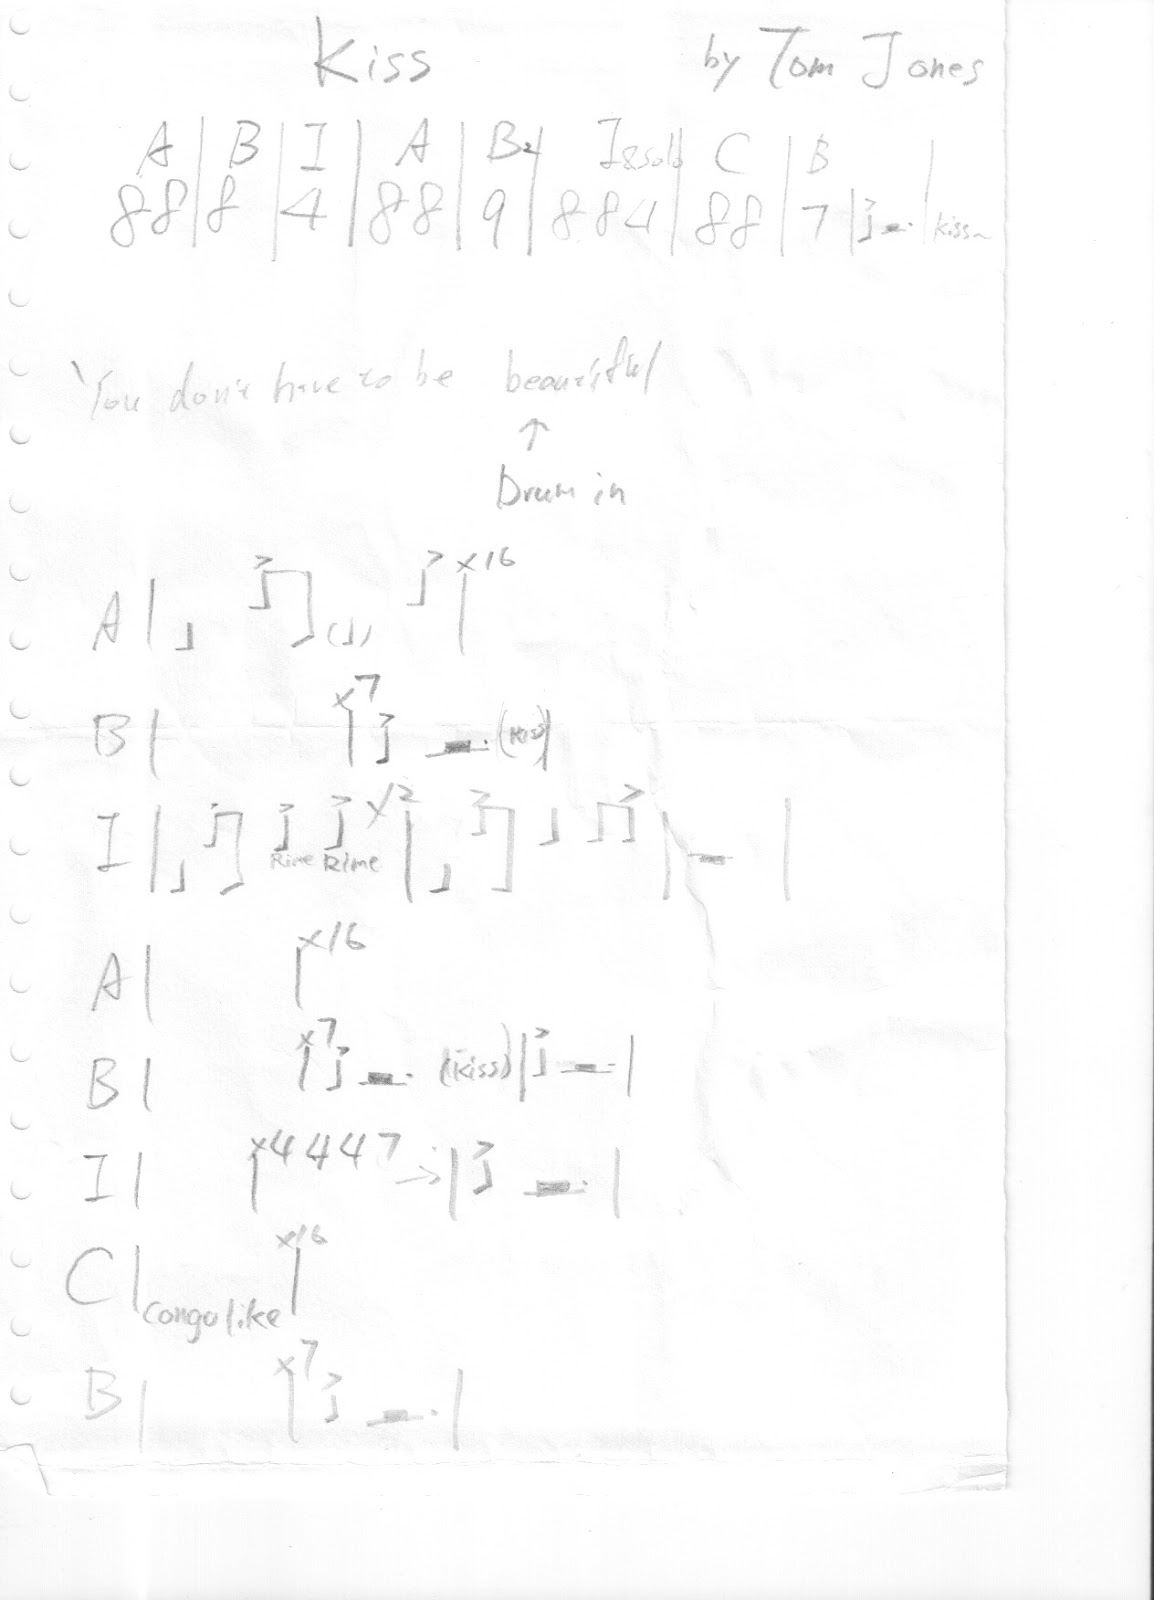 Kiss by Tom Jones
A | B | I | A | B2 | I&solo | C | B |
88 | 8 | 4 | 88 | 9 | 884 | 88 | 7 | | kiss~
You don't have to be beautiful
↑
Drum in
A | (♩) | x16
B | x7 | (Kiss) |
I | Rime Rime x2 | | |
A | | x16
B | x7 | (kiss) | |
I | x4 4 4 7 → | |
C | Congo like | x16
B | x7 | |